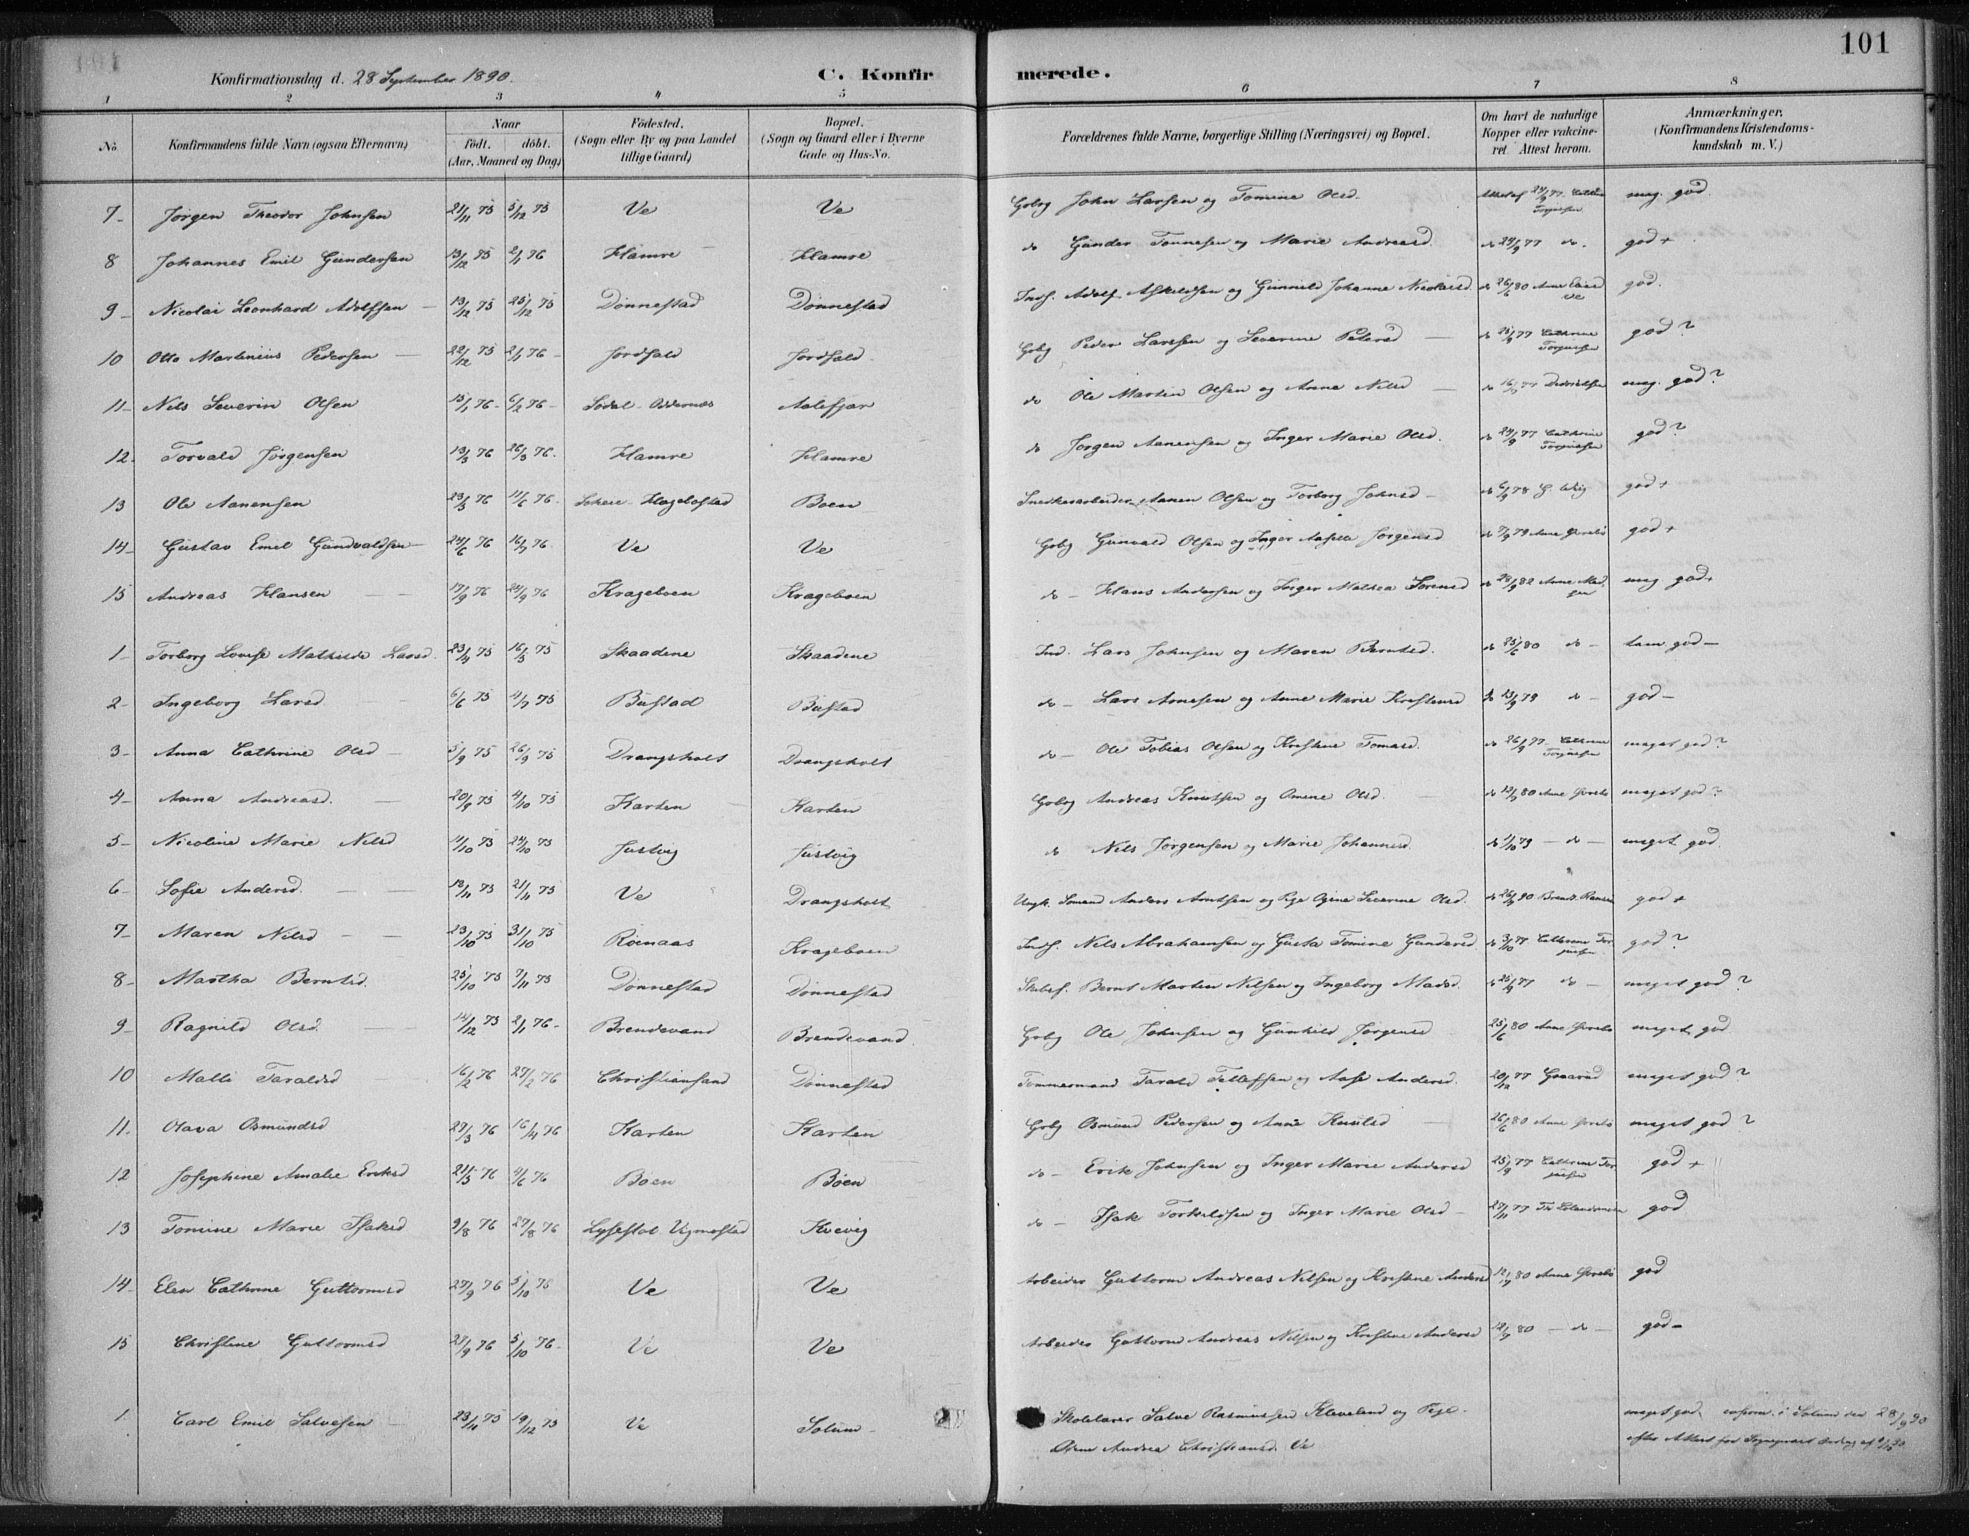 101
Konfirmationsdag d. 28 September 1890.
C. Konfir merede.
1 2 3 4 5 6 7 8
No
Konfirmandens fulde Navn (ogsaa Efternavn)
Naar
födt. döbt.
(Aar, Maaned og Dag)
Födested.
(Sogn eller By og paa Landet
tillige Gaard)
Bopæl.
(Sogn og Gaard eller i Byerne
Gade og Hus-No.
Forældrenes fulde Navne, borgerlige Stilling (Næringsvei) og Bopæl.
Om havt de naturlige
Kopper eller vakcine-
ret. Attest herom.
Anmærkninger.
(Konfirmandens Kristendoms-
kundskab m. V.)
7 Jørgen Theodor Johnsen 21/11 75 5/12 75 Ve Ve Gbrg John Larsen og Tomine Olsd. 24/9 77 Cathrine Torjussen meg. god.
8 Johannes Emil Gundersen 13/12 75 2/1 76 Hamre Hamre do Gunder Tonnesen og Marie Andreasd. do 24/9 77 do. god +
9 Nicolai Leonhard Adolfsen 13/12 75 25/12 75 Dønnestad Dønnestad Inds. Adolf Askildsen og Gunnild Johanne Nicolaisd. do 26/6 80 god.
10 Otto Martinius Pedersen 22/12 75 2/1 76 Jordfald Jordfald Gbrg Peder Larssen og Severine Petersd do 25/9 77 Cathrine Torjussen god?
11 Nils Severin Olsen 13/1 76 6/2 76 Oddernæs Aalefjær do Ole Martin Olsen og Anne Nilsd do 77 meg. god?
12 Torvald Jørgensen 13/3 76 26/3 76. Hamre Hamre do Jørgen Aanensen og Inger Marie Olsd. do 24/9 77 Cathrine Torjussen god?
13 Ole Aanensen 23/3 76 11/6 76 Hægebostad Boen Snedkerarbeider Aanen Olsen og Torborg Johnsd do 6/9 78 god +
14 Gustav Emil Gundvaldsen 24/6 76 16/7 76 Ve Ve Gbrg Gunvald Olsen og Inger Jørgensd do 7/9 79 Anne god +
15 Andreas Hansen 17/9 76 24/9 76 Krageboen Krageboen do Hans Andersen og Inger Mathea Sørensd do 28/9 82 Anne meg god +
1 Torborg Lovise Mathilde Larsd. 23/4 75 16/5 75 Skaadene Skaadene Ind. Lars Johnsen og Maren Berntsd. do 25/6 80 do tem. god -
2 Ingeborg Larsd 6/6 75 4/7 75 Bustad Bustad do Lars Arnesen og Anne Marie Kristensd do 13/9 79 do god -
3 Anna Cathrine Olsd 5/9 75 26/9 75 Drangsholt Drangsholt do Ole Tobias Olsen og Kristine Tomasd. do 26/9 77 Cathrine Torjussen meget god?
4 Anna Andreasd. 20/9 75 4/10 75 Karten Karten Gbrg Andreas Knutsen og Omine Olsd. do 80 Anne meget god?
5 Nicoline Marie Nilsd 4/10 75 24/10 75 Justvig Justvig do Nils Jørgensen og Marie Johannesd. do 11/10 79 do meget god.
6 Sofie Andersd. 12/11 75 21/11 75 Ve Drangsholt Ungk. Sømand Anders Arntsen og Pige Severine Olsd. do 26/9 90 god +
7 Maren Nilsd 23/10 75 31/10 75 Røenaas Krageboen Inds. Nils Abrahamsen og Gusta Tomine Gundersd. do 3/10 77 Cathrine Torjussen god?
8 Martha Berntsd. 25/10 75 7/11 75 Dønnestad Dønnestad Bernt Martin Nilsen og Ingeborg Madsd. do 25/9 77 do meget god?
9 Ragnild Olsd. 14/12 75 2/1 76 Brendevand Brendevand Gbrg Ole Johnsen og Gunhild Jørgensd 25/6 80 Anne meget god
10 Malli Taraldsd 16/2 76 27/2 76 Christiansand Dønnestad Tømmermand Tarald Tellefsen og Aase Andersd. 20/12 77 meget god?
11 Olava Osmundsd 27/3 76 16/4 76 Karten Karten Gbrg Osmund Pedersen og Anne Knutsd 26/6 80 Anne meget god?
12 Josephine Amalie Eriksd 21/5 76 4/6 76 Boen Boen do Erik Johnsen og Inger Marie Andersd 25/9 77 Cathrine Torjussen god +
13 Tomine Marie Isaksd 9/8 76 27/8 76 Lyssestøl Vigmostad Kvevig do Isak Torkelsen og Inger Marie Olsd 27/11 77 god
14 Elen Cathrine Guttormsd 27/9 76 5/10 76 Ve Ve Arbeider Guttorm Andreas Nilsen og Kristine Andersd 12/9 80 Anne god
15 Christine Guttormsd 27/9 76 5/10 76 Ve Ve Arbeider Guttorm Andreas Nilsen og Kristine Andersd 12/9 80 do god -
1. Carl Emil Salvesen 23/11 75 19/12 75 Ve Solum Skolelærer Salve Rasmussen Kleveland og Pige
Andrea Christiansd. Ve
meget god. conform. i Solum den 28/9 90
efter Attest fra Sognepræst